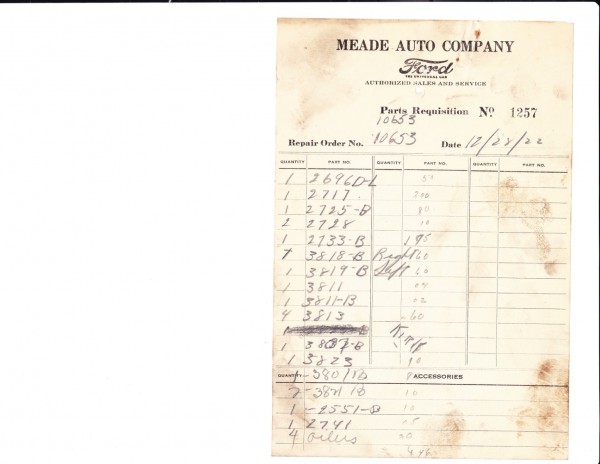 MEADE AUTO COMPANY
Ford
THE UNIVERSAL CAR
AUTHORIZED SALES AND SERVICE
Parts Requisition No 1257
10653
Repair Order No. 10653 Date 12/28/22
QUANTITY PART NO. QUANTITY PART NO. QUANTITY PART NO.
1 2696D-L 50
1 2717 200
1 2725-B 80
2 2728 10
1 2733-B 195
3818-B Right 60
1 3819-B Left 60
1 3811 04
1 3811-B 02
4 3813 60
1
1
1 3823 10
QUANTITY ACCESSORIES
10
1 -2551-
1 2741
4 oilers